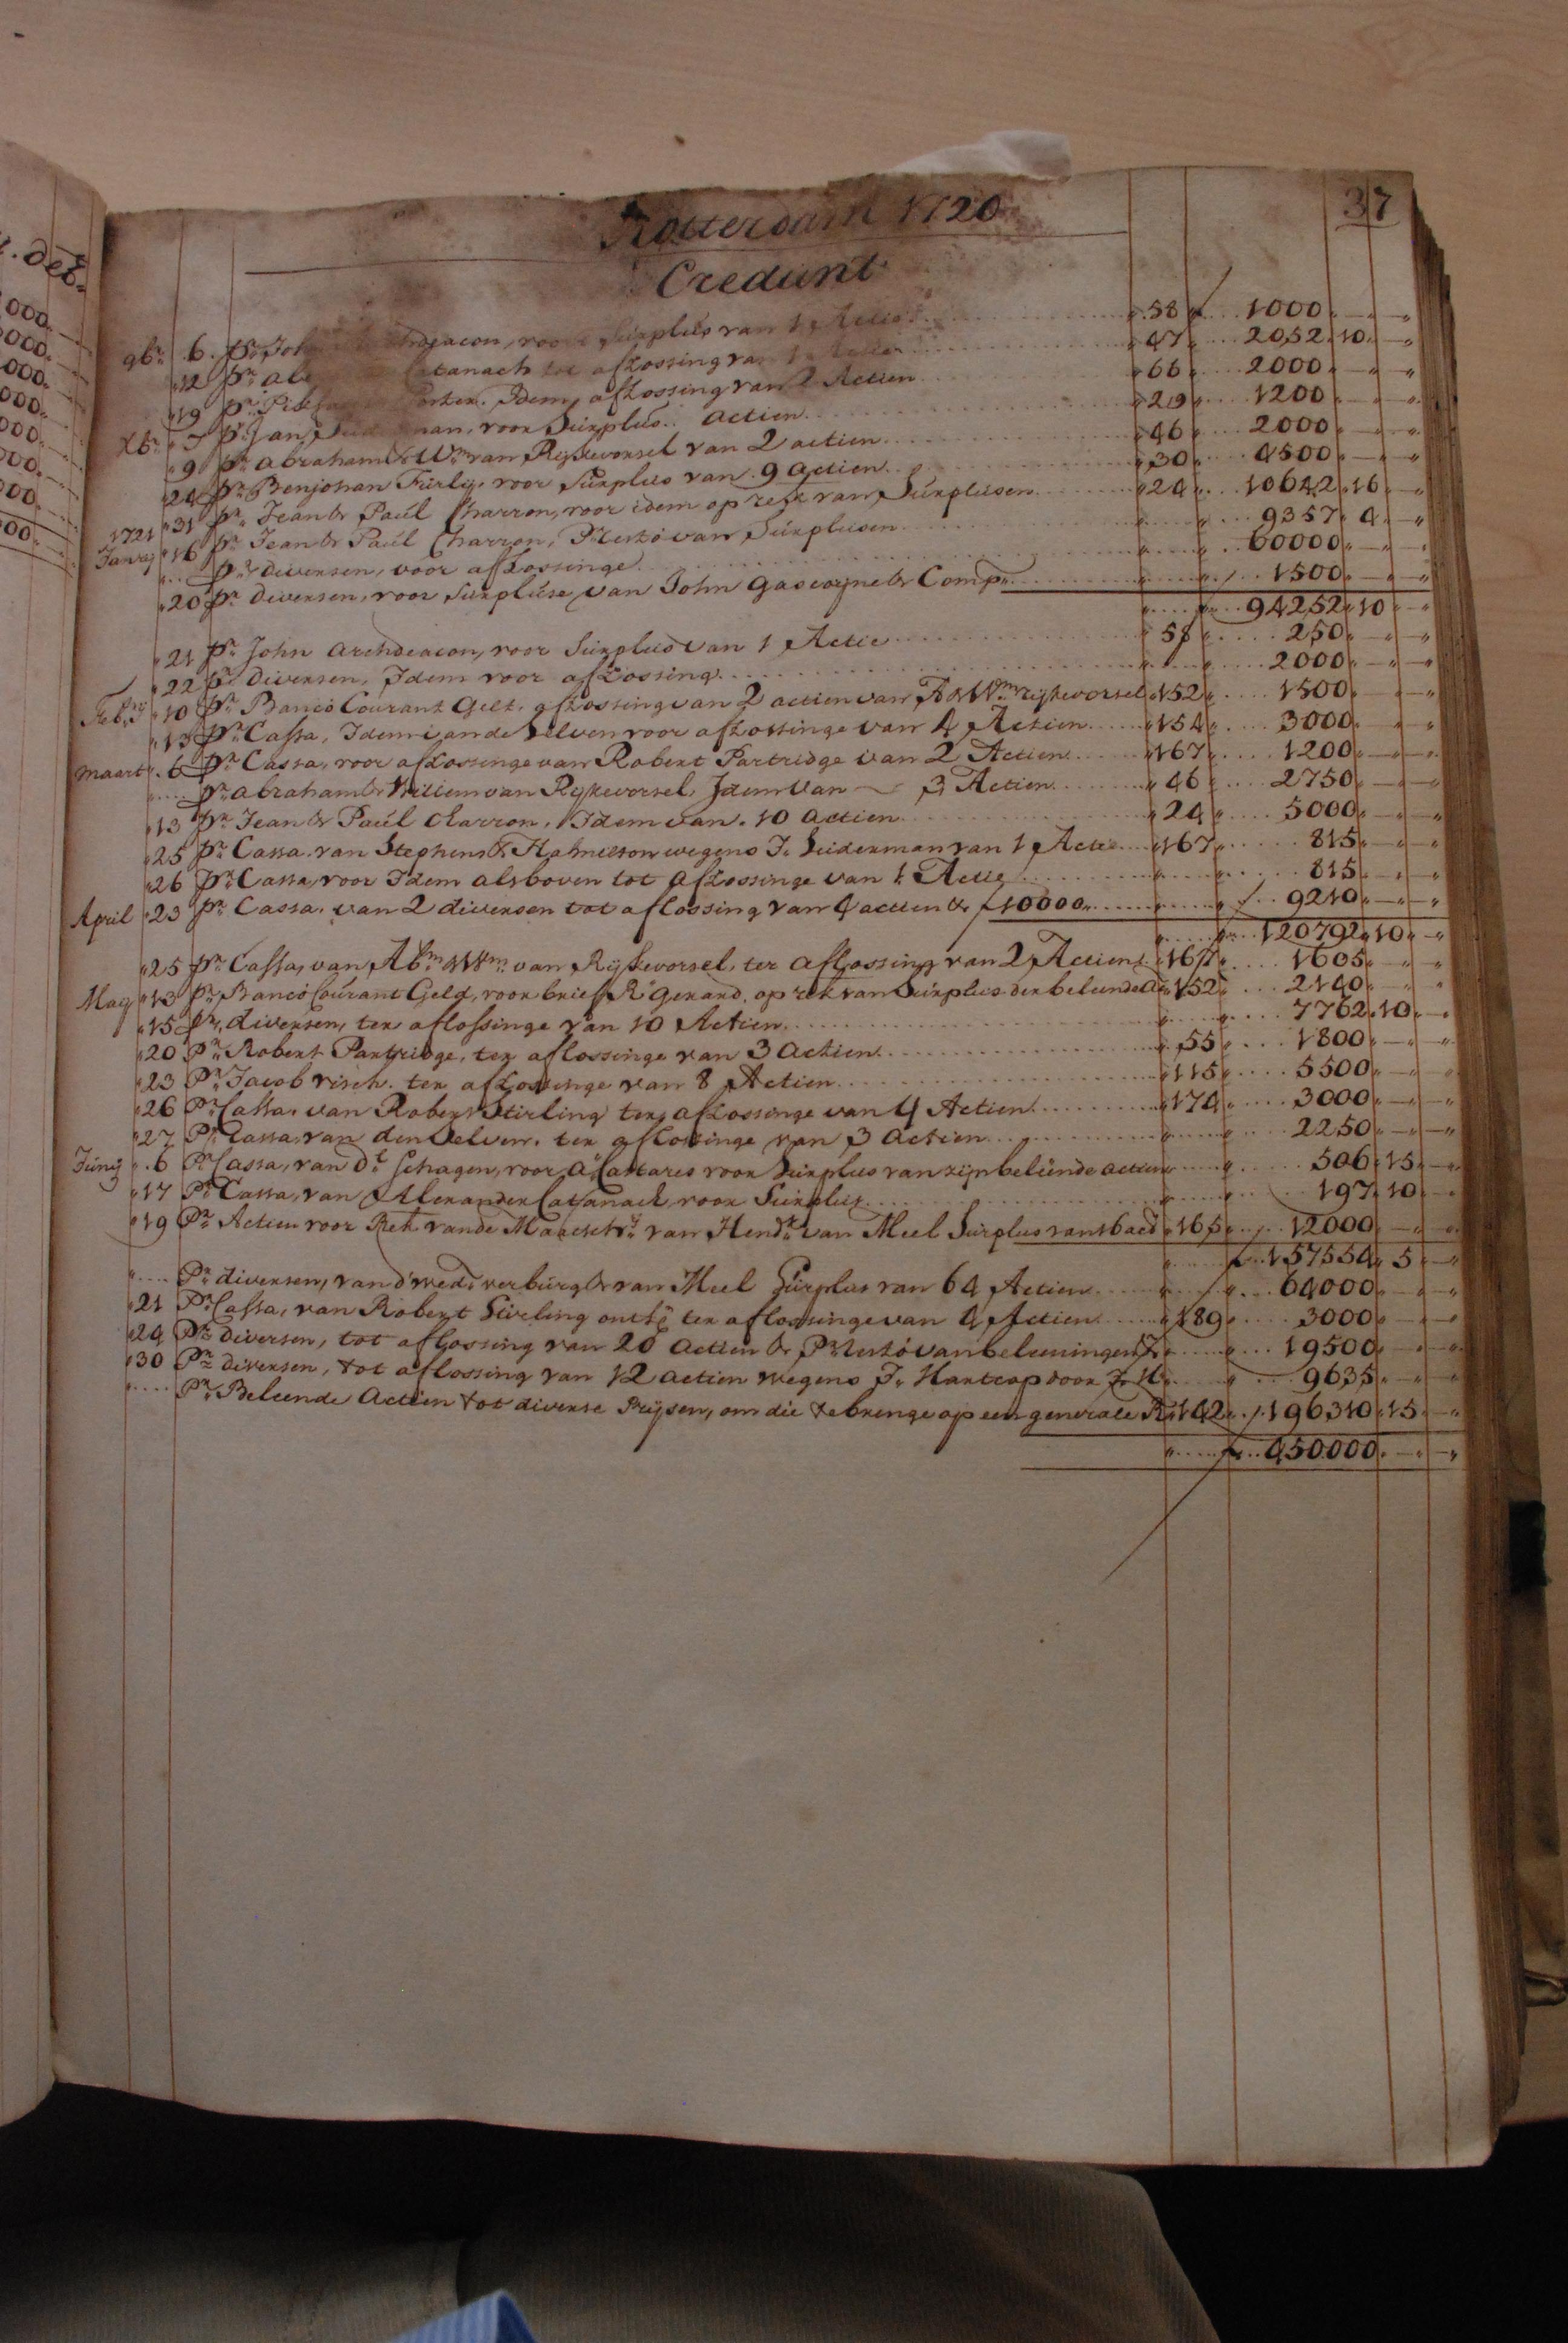 . deb.
000.
000.
000.
000.
000.
000.
000.
00.
37
Rotterdam 1720
Credunt
9br. 6. pr. Joh deacon, voor Surplus van 1 Actie 58 f 1000
12 pr. Ab Catanach tot aflossing van 1 Actie 47 2052 10
19 pr. Idem, aflossing van 2 Actien 66 2000
Xbr. 7 pr. Jan man, voor Surplus. actien 29 1200
9 pr. Abraham & Wm. van Rijckevorsel van 2 actien 46 2000
24 pr. Benjohan Furly, voor Surplus van 9 actien 30 4500
31 pr. Jean & Paul Charron, voor idem op rek van Surplusen 24 10642 16
1721
Janry 16 pr. Jean & Paul Charron, Pr Resto van Surplusen 9357 4
pr. diversen, voor aflossinge 60000
20 pr. diversen, voor Surpluse van John Gascoyne & Comp. 1500
94252 10
21 pr. John Archdeacon, voor Surplus van 1 Actie 58 250
22 pr. Diversen, Idem voor aflossing 2000
Febrij 10 pr. Banco Courant Gelt, aflossing van 2 actien van A & Wm rijkevorsel 152 1500
13 pr. Cassa, Idem van de Selven voor aflossinge van 4 Actien 154 3000
Maart 6 pr. Cassa, voor aflossinge van Robert Partridge van 2 Actien 167 1200
pr. Abraham & Willem van Rijkevorsel, Idem van 3 Actien 46 2750
13 pr. Jean & Paul Charron, Idem van. 10 actien 24 5000
25 pr. Cassa. van Stephens & Hamelton wegens J. Suiderman van 1 Actie 167 815
26 pr. Cassa, voor Idem als boven tot aflossinge van 1. Actie 815
April 23 pr. Cassa. van 2 diversen tot aflossing van 4 actien & f 10000 9210
120792 10
25 pr. Cassa, van Abm & Wm. van Rijkevorsel, ter aflossing van 2 Actien 167 1605
May 13 pr. Banco Courant Geld, voor brief R Gerard. op rek van Surplus der beleende A 152 2140
15 pr. diversen, ter aflossinge van 10 Actien 7762 10
20 Pr. Robert Partridge, ter aflossinge van 3 actien 55 1800
23 Pr. Jacob Visch. ter aflossinge van 8 Actien 115 5500
26 Pr. Cassa. van Robert Stirling ter aflossinge van 4 Actien 174 3000
27 Pr. Cassa, van den Selven. ter aflossinge van 3 actien 2250
Junij 6 Pr. Cassa, van dl Schagen, voor Castares voor Surplus van zijn beleende actien 506 15
17 Pr. Cassa, van Alexander Catanach voor Surplus 197 10
19 Pr. Actien voor Rek. vande Maatschy. van Hendk. van Meel Surplus van 16 act 165 12000
157554 5
Pr. diversen, van d'wed. verburg & van Meel Surplus van 64 Actien 64000
21 Pr. Cassa, van Robert Stirling ter aflossinge van 4 Actien 189 3000
24 Pr. diversen, tot aflossing van 26 actien & Pr Resto van beleeningen 19500
30 Pr. diversen, tot aflossing van 12 actien wegens J. Hartcop door 9635
Pr. Beleende Actien tot diverse Prijsen, om die te brenge op een generale R 142 196310 15
450000